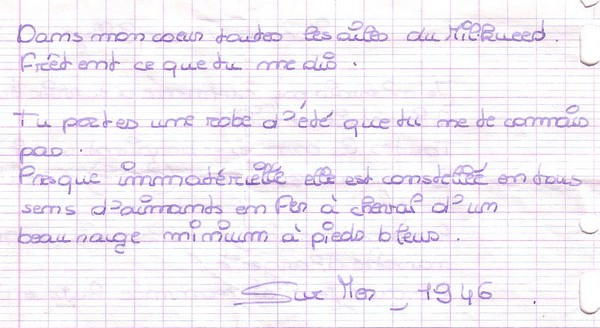 Dans mon coeur toutes les ailes du Milkweed.
Frêtent ce que tu me dis.
Tu portes une robe d'été que tu ne te connais
pas.
Presque immatérielle elle est constellée en tous
sens d'aimants en fer à cheval d'un
beau rouge minium à pieds bleus.
Sur Mer _ 1946.